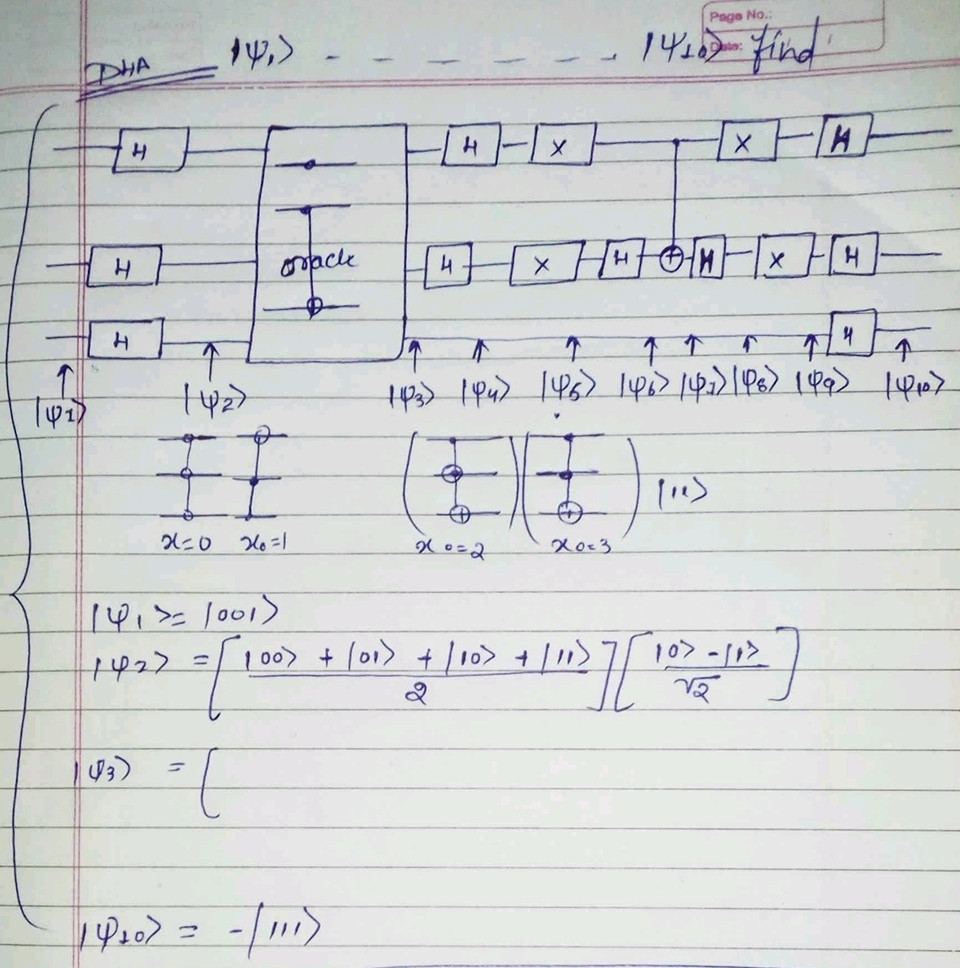 Page No.:
Date:
DHA |ψ₁> - - - - - - - |ψ₁₀> find
H H X X H
H oracle H X H H X H
H H
|ψ₁> |ψ₂> |ψ₃> |ψ₄> |ψ₅> |ψ₆> |ψ₇> |ψ₈> |ψ₉> |ψ₁₀>
|11>
x=0 x₀=1 x₀=2 x₀=3
|ψ₁> = |001>
|ψ₂> = [|00> + |01> + |10> + |11> / 2] [|0> - |1> / √2]
|ψ₃> = [
|ψ₁₀> = -|111>